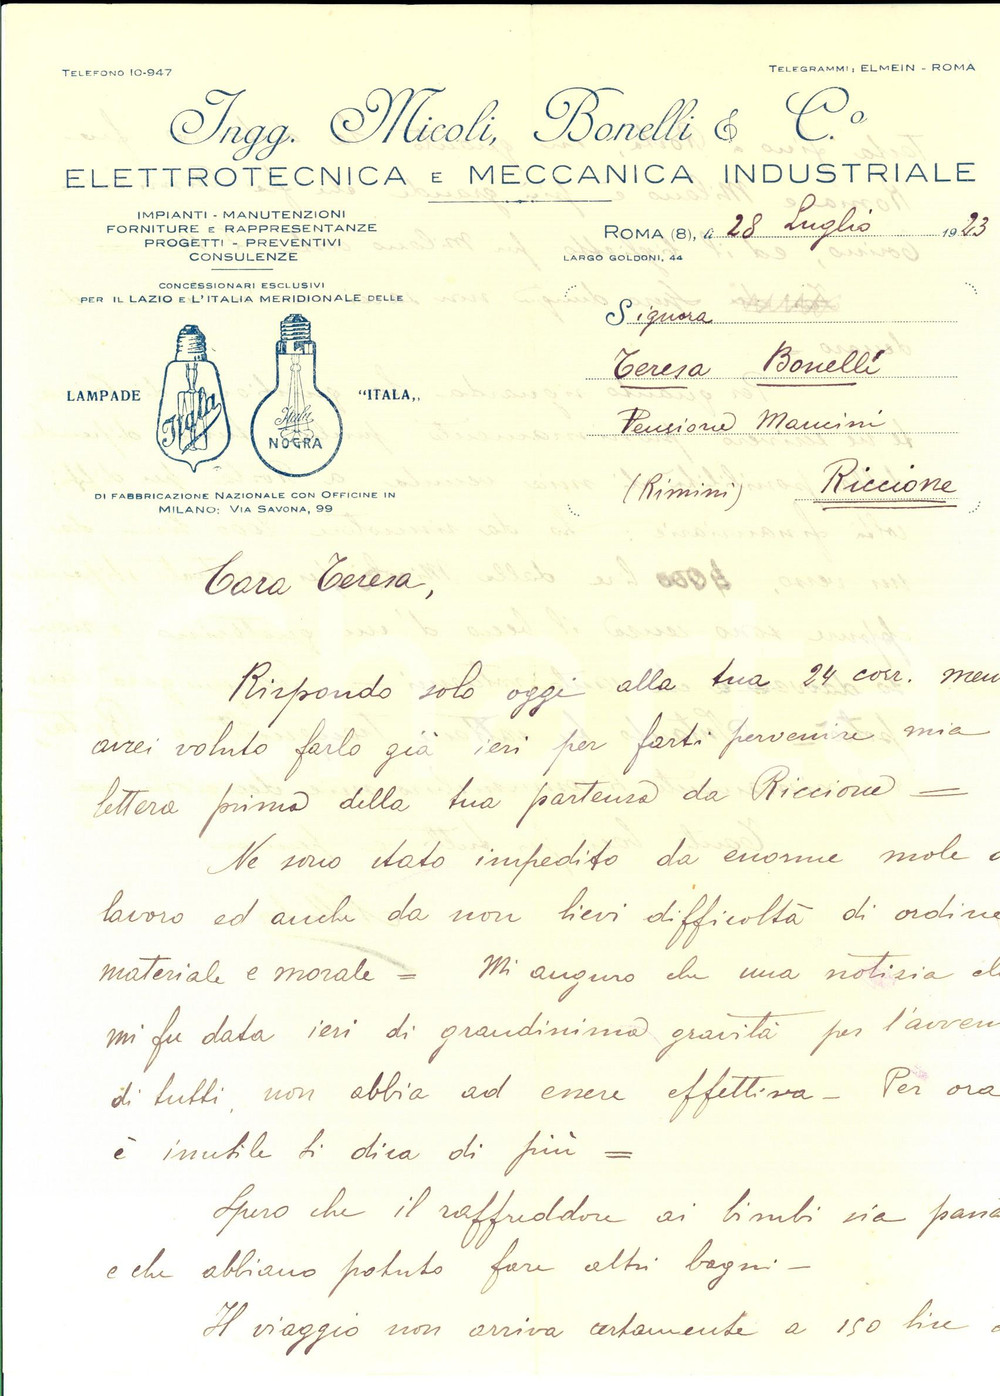 TELEFONO 10-947
TELEGRAMMI: ELMEIN - ROMA
Ingg. Micoli, Bonelli & C.o
ELETTROTECNICA E MECCANICA INDUSTRIALE
IMPIANTI - MANUTENZIONI
FORNITURE E RAPPRESENTANZE
PROGETTI - PREVENTIVI
CONSULENZE
ROMA (8), li 28 Luglio 1923
LARGO GOLDONI, 44
CONCESSIONARI ESCLUSIVI
PER IL LAZIO E L'ITALIA MERIDIONALE DELLE
LAMPADE
Itala
Itala
NOGRA
"ITALA„
DI FABBRICAZIONE NAZIONALE CON OFFICINE IN
MILANO: VIA SAVONA, 99
Signora
Teresa Bonelli
Pensione Mancini
(Rimini) Riccione
Cara Teresa,
Rispondo solo oggi alla tua 24 corr. men
avrei voluto farlo già ieri per farti pervenire mia
lettera prima della tua partenza da Riccione =
Ne sono stato impedito da enorme mole d
lavoro ed anche da non lievi difficoltà di ordine
materiale e morale = Mi auguro che una notizia ch
mi fu data ieri di grandissima gravità per l'avven
di tutti, non abbia ad essere effettiva - Per ora
è inutile ti dica di più =
Spero che il raffreddore ai bimbi sia passa
e che abbiano potuto fare altri bagni -
Il viaggio non arriva certamente a 150 lire